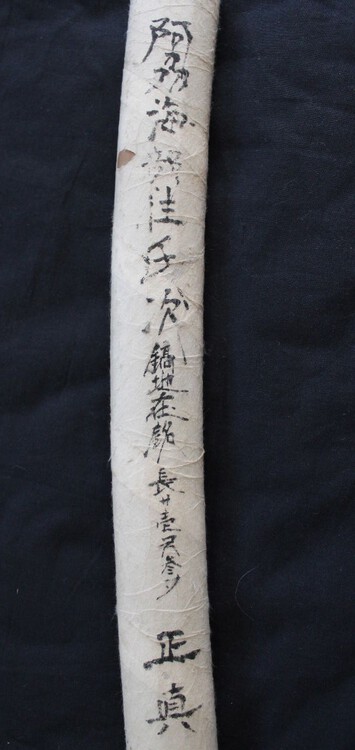 阿刕海部住氏次鎬地在銘長サ壱尺参寸 正真